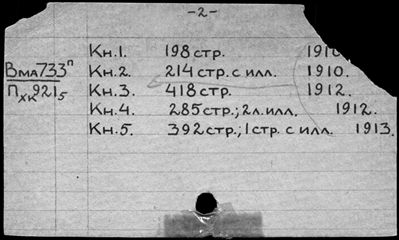 -2-
Кн.1. 198 стр. 1910
Вма733ᴨ Кн.2. 214 стр. с илл. 1910.
Пхк921₅ Кн.3. 418 стр. 1912.
Кн.4. 285 стр.; 2 л. илл. 1912.
Кн.5. 392 стр.; 1 стр. с илл. 1913.